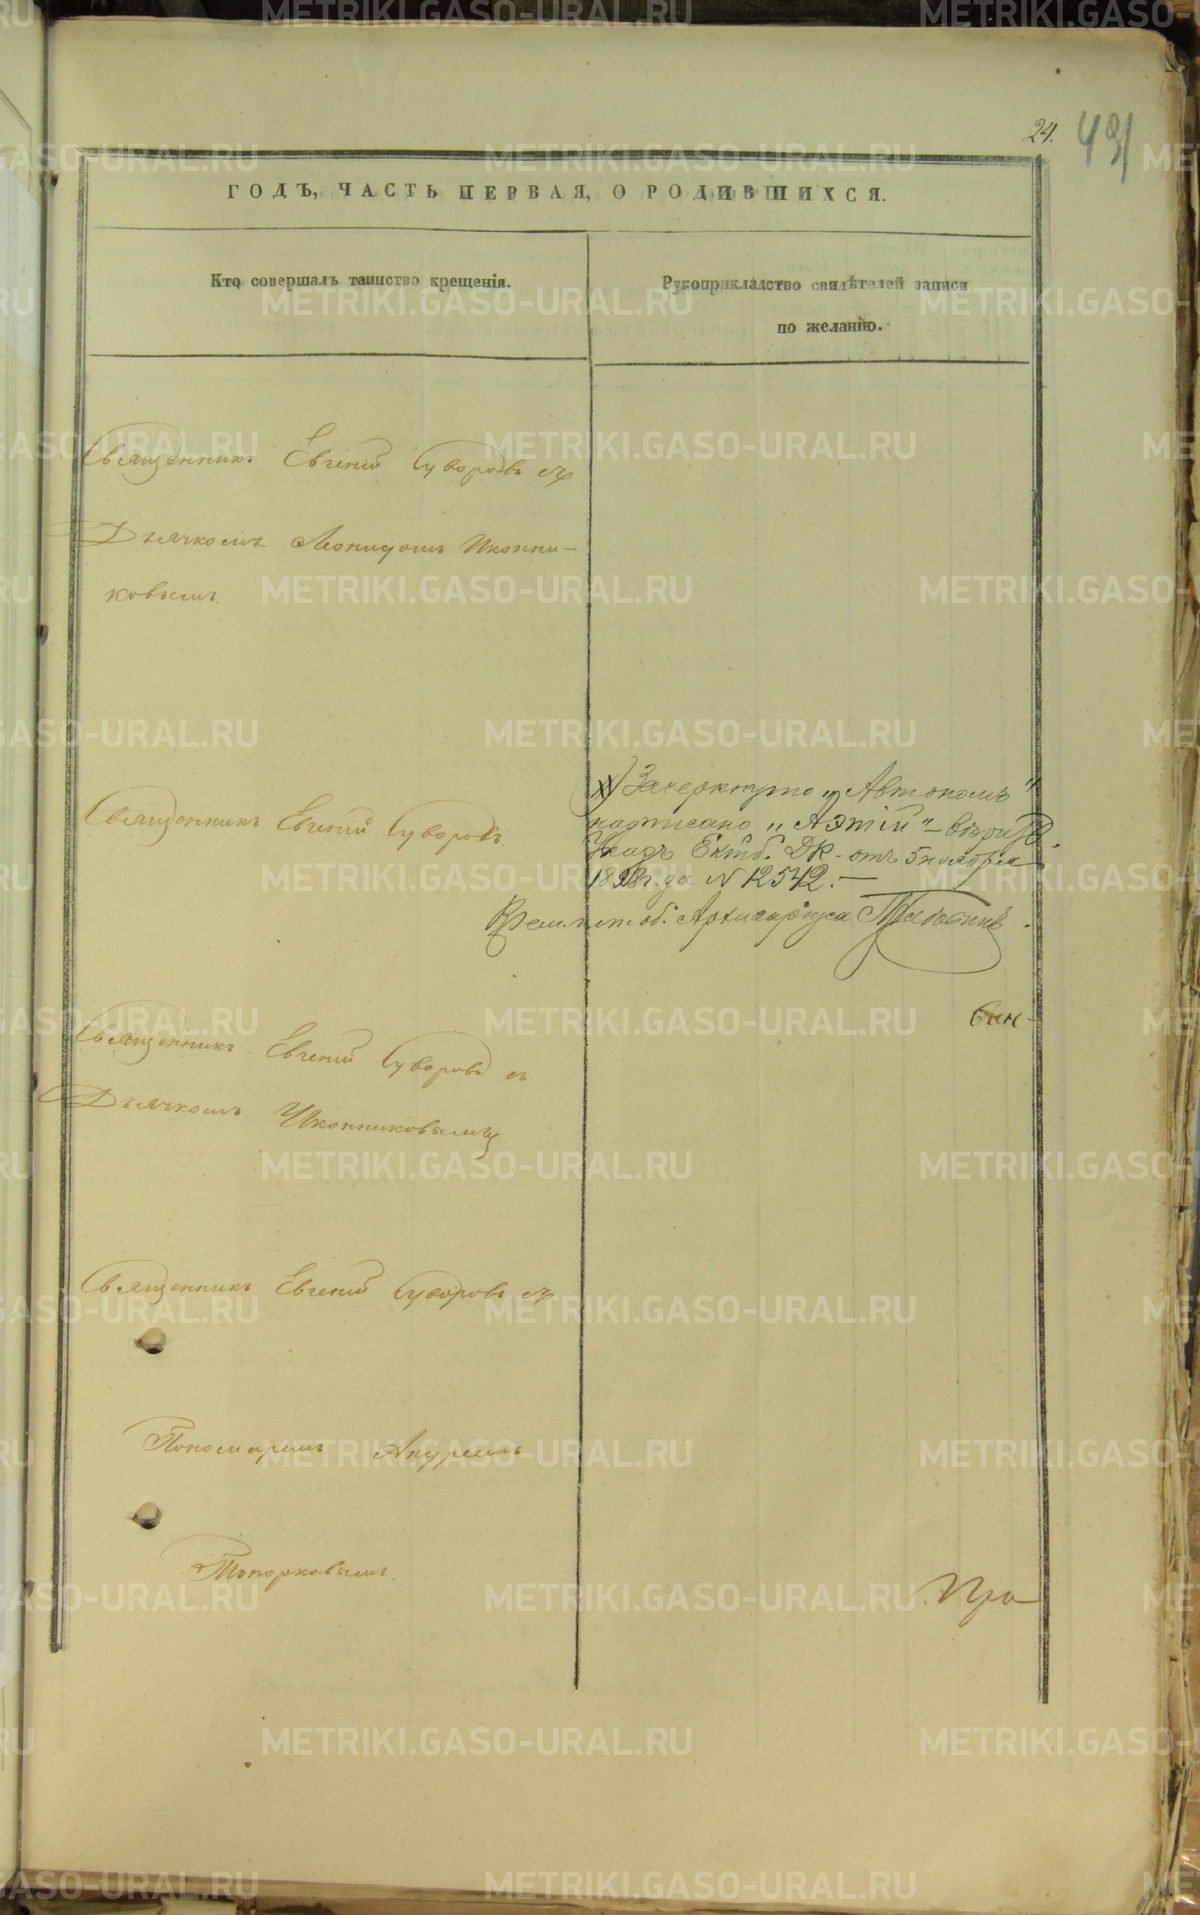 24.
431
ГОДЪ, ЧАСТЬ ПЕРВАЯ, О РОДИВШИХСЯ.
Кто совершалъ таинство крещенія.
Рукоприкладство свидѣтелей записи
по желанію.
Священникъ Евгеній Суворовъ съ
Дьячкомъ Леонидомъ Иконни-
ковымъ.
Священникъ Евгеній Суворовъ.
х) Зачеркнуто „Автономъ"
надписано „Аэтій" – вѣрить.
Указъ Ектб. ДК. отъ 5 ноября
18 г. за N 12542. —
об. Архиваріуса
Священникъ Евгеній Суворовъ съ
Дьячкомъ Иконниковымъ
Священникъ Евгеній Суворовъ съ
Пономаремъ Андреемъ
Топорковымъ.
Пра
METRIKI.GASO-URAL.RU